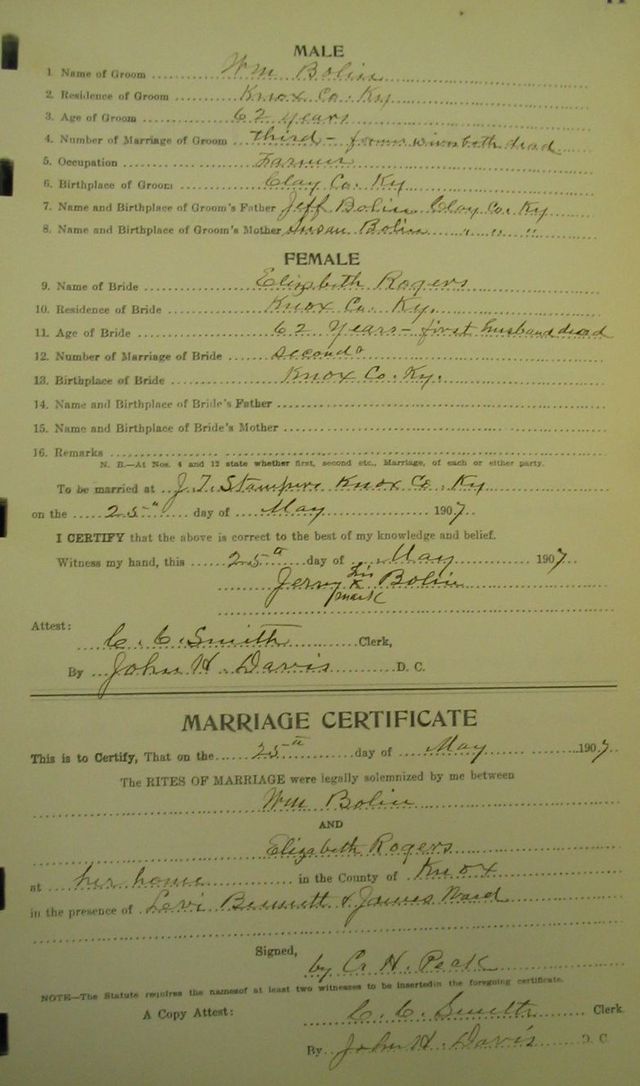 MALE
1. Name of Groom Wm Bolin
2. Residence of Groom Knox Co. Ky
3. Age of Groom 62 years
4. Number of Marriage of Groom third - former wives both dead
5. Occupation Farmer
6. Birthplace of Groom Clay Co. Ky
7. Name and Birthplace of Groom's Father Jeff Bolin Clay Co. Ky
8. Name and Birthplace of Groom's Mother Susan Bolin " " "
FEMALE
9. Name of Bride Elizabeth Rogers
10. Residence of Bride Knox Co. Ky.
11. Age of Bride 62 Years - first husband dead
12. Number of Marriage of Bride second
13. Birthplace of Bride Knox Co. Ky.
14. Name and Birthplace of Bride's Father
15. Name and Birthplace of Bride's Mother
16. Remarks
N. B.—At Nos. 4 and 12 state whether first, second etc., Marriage, of each or either party.
To be married at J. T. Stampers Knox Co. Ky
on the 25th day of May 1907.
I CERTIFY that the above is correct to the best of my knowledge and belief.
Witness my hand, this 25th day of May 1907
Jerry his x mark Bolin
Attest:
C. C. Smith Clerk,
By John H. Davis D. C.
MARRIAGE CERTIFICATE
This is to Certify, That on the 25th day of May 1907.
The RITES OF MARRIAGE were legally solemnized by me between
Wm Bolin
AND
Elizabeth Rogers
at her home in the County of Knox
in the presence of Levi Bennett & James Ward
Signed,
by H. Peck
NOTE—The Statute requires the names of at least two witnesses to be inserted in the foregoing certificate.
A Copy Attest: C. C. Smith Clerk
By John H. Davis D. C.